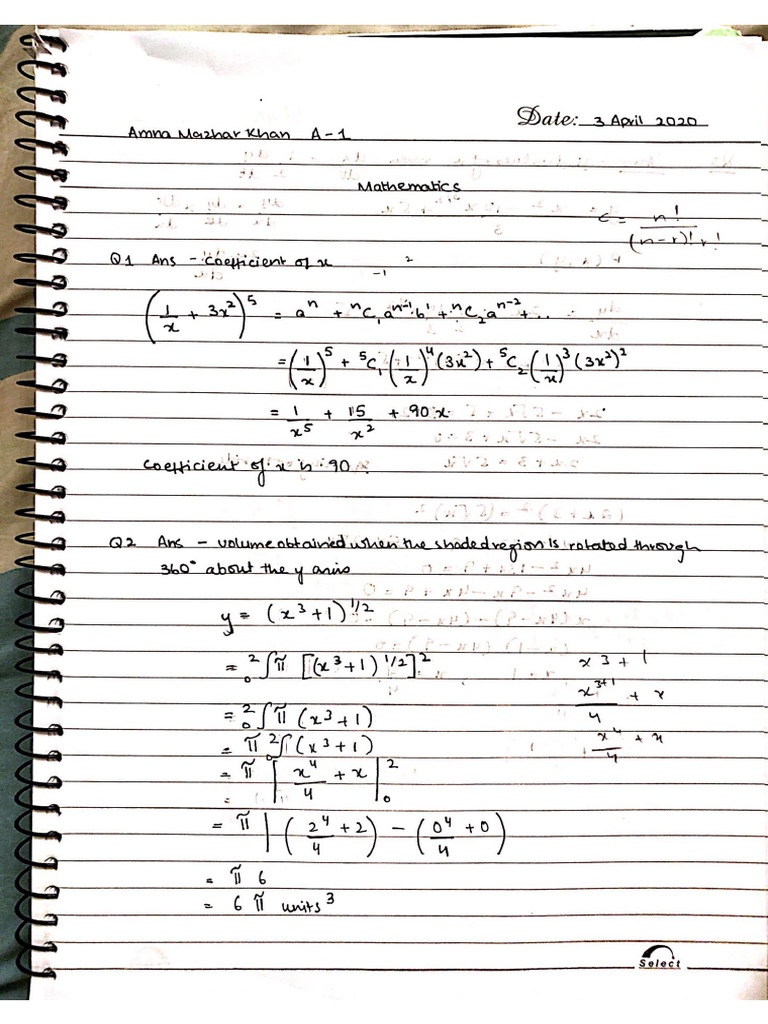 Date: 3 April 2020
Amna Mazhar Khan A-1
Mathematics
C = n! / (n-r)! r!
Q1 Ans - Coefficient of x
-1 2
(1/x + 3x²)⁵ = aⁿ + ⁿC₁aⁿ⁻¹b¹ + ⁿC₂aⁿ⁻² + ..
= (1/x)⁵ + ⁵C₁(1/x)⁴(3x²) + ⁵C₂(1/x)³(3x²)²
= 1/x⁵ + 15/x² + 90x
Coefficient of x is 90.
Q2 Ans - volume obtained when the shaded region is rotated through
360° about the y axis
y = (x³+1)^1/2
= ₀²∫π [(x³+1)^1/2]²
= ₀²∫π (x³+1)
= π ₀²∫(x³+1)
= π | x⁴/4 + x |₀²
=
= π | (2⁴/4 + 2) - (0⁴/4 + 0)
= π 6
= 6 π units³
x3 + 1
x³⁺¹/4 + x
x⁴/4 + x
Select